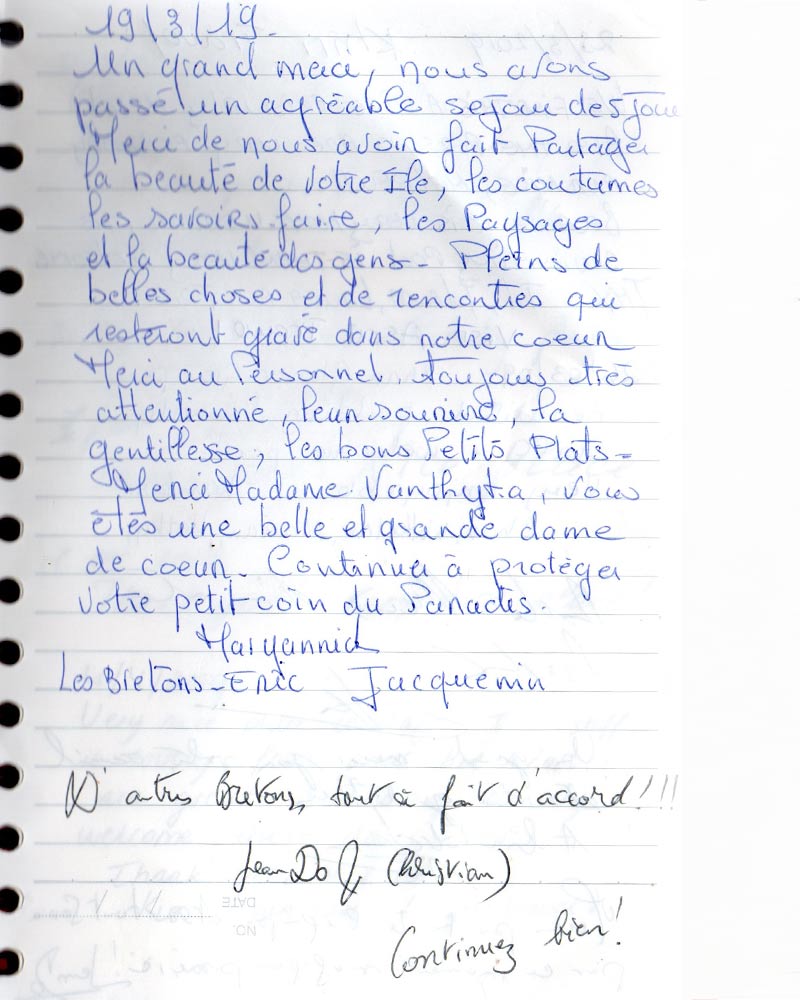 19/3/19.
Un grand merci, nous avons
passé un agréable sejour de 5 jour
Merci de nous avoir fait Partager
la beauté de votre île, les coutumes
les savoirs faire, les Paysages
et la beauté des gens - Pleins de
belles choses et de rencontres qui
resteront gravé dans notre coeur
Merci au Personnel, toujours très
attentionné, leur sourire, la
gentillesse, les bons Petits Plats -
Merci Madame Vanthyta, vous
êtes une belle et grande dame
de coeur. Continuer à protéger
votre petit coin du Paradis.
Maryannick
Les Bretons - Eric Jacquemin
D'autres Bretons, tout à fait d'accord!!!
Jean Do & (Christian)
DATE
NO.
Continuez bien!